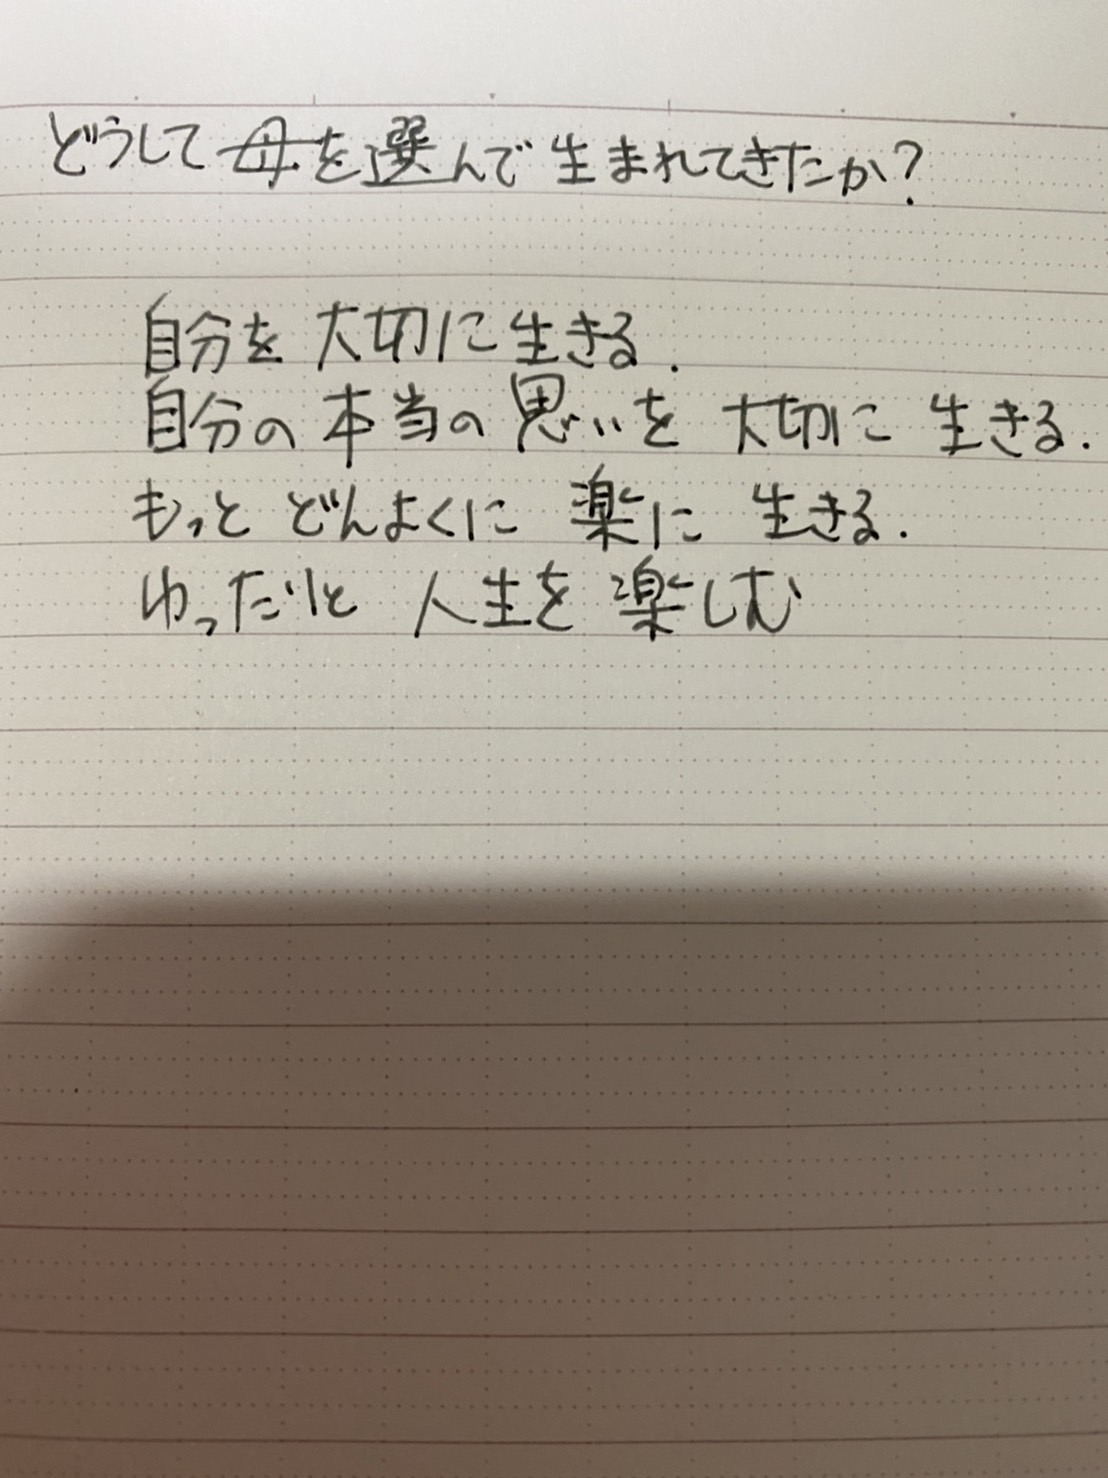 どうして母を選んで生まれてきたか?
自分を大切に生きる.
自分の本当の思いを大切に生きる.
もっとどんよくに楽に生きる.
ゆったりと人生を楽しむ